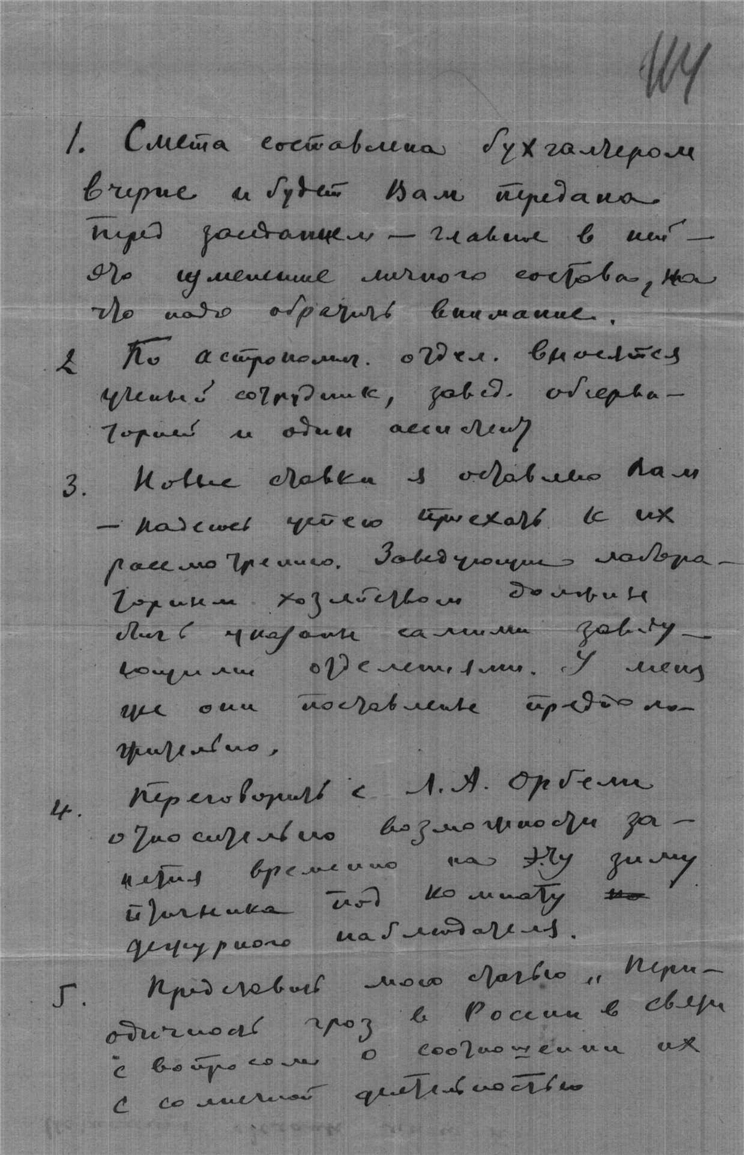 114
1. Смета составлена бухгалтером
вчерне и будет Вам передана
перед заседанием — главное в ней —
это изменение личного состава, на
что надо обратить внимание.
2 По астрономич. отдел. вносятся
ученый сотрудник, завед. обсерва-
торией и один ассистент
3. Новые ставки я оставляю Вам
— надеюсь успею приехать к их
рассмотрению. Заведующие лабора-
торным хозяйством должны
быть указаны самими заведу-
ющими отделениями. У меня
же они поставлены предполо-
жительно.
4. Переговорить с Л. А. Орбели
относительно возможности за-
нятия временно на эту зиму
птичника под комнату
дежурного наблюдателя.
5. Представить мою статью „Пери-
одичность гроз в России в связи
с вопросом о соотношении их
с солнечной деятельностью